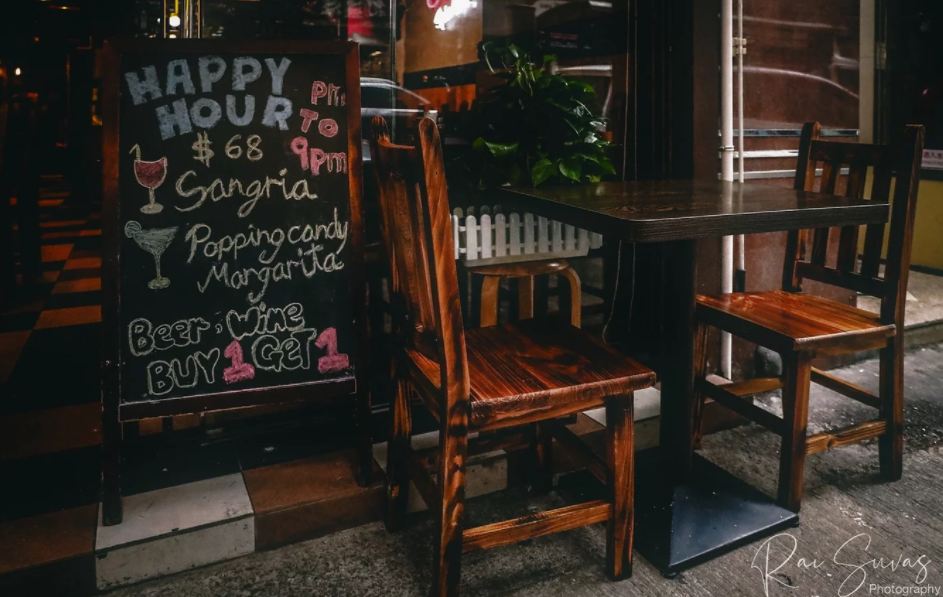 HAPPY
HOUR
pm
TO
9pm
$68
Sangria
Popping candy
Margarita
Beer, Wine
BUY 1 GET 1
Rai Suvas
Photography